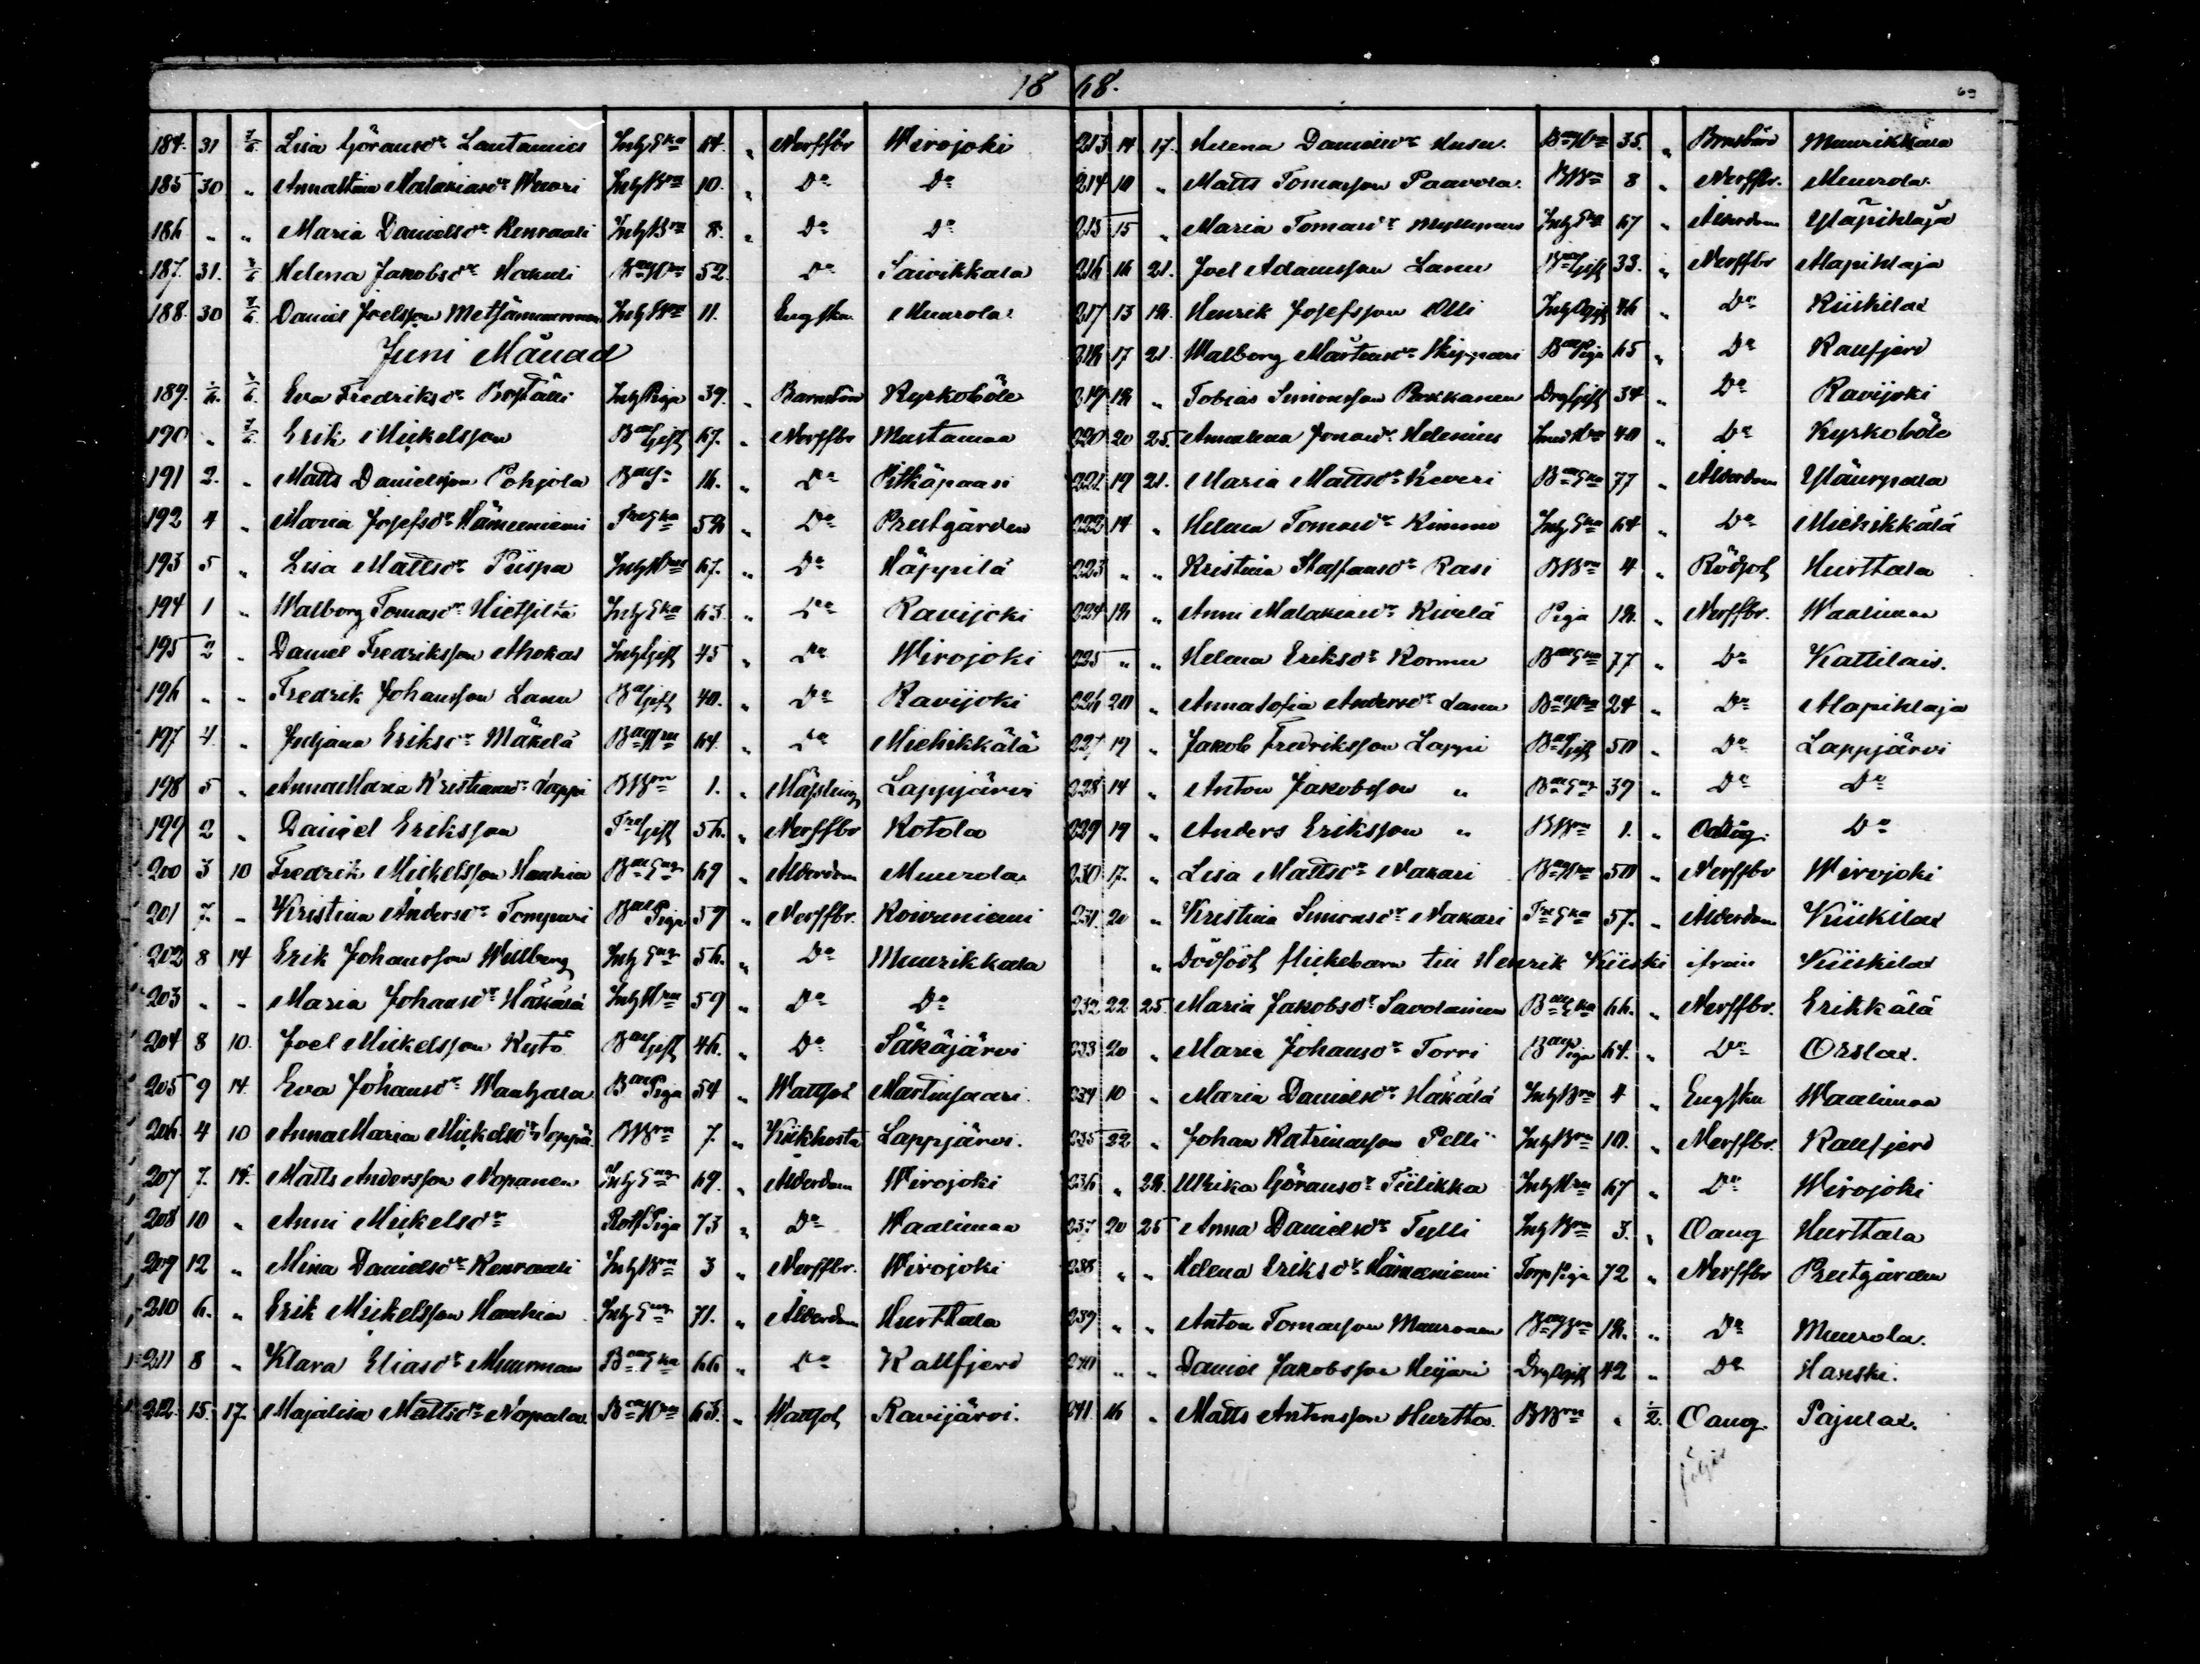 18 68.
69
184. 31 7/6. Lisa Göransdr Lantamies Inh Eka 64. „ Nerffbr Wirojoki
185 30 „ Annastina Malakiasdr Wuori Inh Brn 10. „ Do Do
186 „ „ Maria Danielsdr Kenraali Inh Brn 8. „ Do Do
187. 31. 7/6 Helena Jakobsdr Hakuli Hru 52. „ Do Saivikkala
188. 30 7/6. Daniel Joelsson Metsämuuronen Inh Brn 11. Eng sku Muurola
Juni Månad
189. 1/6. 7/6. Eva Fredriksdr Inh Piga 39. „ Barnsbörd Kyrkoböle
190 „ 7/6. Erik Mickelsson Gift 67. „ Nerffbr Mustamaa
191 2. „ Matts Danielsson Pohjola 16. „ Do Pitkäpaasi
192 4 „ Maria Josefsdr Hämeeniemi Eka 58 „ Do Prestgården
193 5 „ Lisa Mattsdr Piispa Inh Hru 67. „ Do Häppilä
194 1 „ Walborg Tomasdr Hietsilta Inh Eka 63. „ Do Ravijoki
195 2 „ Daniel Fredriksson Ahokas Inh Gift 45 „ Do Wirojoki
196 „ „ Fredrik Johansson Lanu Gift 40. „ Do Ravijoki
197 4. „ Juljana Eriksdr Mäkelä Hru 64. „ Do Miehikkälä
198 5 „ AnnaMaria Kristiansdr Lappi BBrn 1. „ Mässling Lappjärvi
199 2 „ Daniel Eriksson Gift 56. „ Nerffbr Kotola
200 3 10 Fredrik Mickelsson Haukia 69 „ Ålderdom Muurola
201 7. „ Kristina Andersdr Tompuri Piga 59 „ Nerffbr. Koivuniemi
202 8 14 Erik Johansson Willberg Inh 56. „ Do Muurikkala
203 „ „ Maria Johansdr Häkälä Inh Hru 59 „ Do Do
204 8 10. Joel Mickelsson Kytö Gift 46. „ Do Säkäjärvi
205 9 14. Eva Johansdr Wanhala Piga 54 „ Wattsot Martinsaari
206 4 10 AnnaMaria Mickelsdr Leppä BBrn 7. „ Kikhosta Lappjärvi.
207 7. 14. Matts Andersson Nopanen Inh 69. „ Ålderdom Wirojoki
208 10 „ Anni Mickelsdr Rotf Piga 73 „ Do Waalimaa
209 12 „ Mina Danielsdr Kenraali Inh Brn 3 „ Nerffbr. Wirojoki
210 6. „ Erik Mickelsson Haukia Inh 71. „ Ålderdom Hurttala
211 8 „ Klara Eliasdr Muurman Eka 66 „ Do Kallfjerd
212. 15. 17. Majalisa Mattsdr Nopala Hru 63. „ Wattsot Ravijärvi.
213 14 17. Helena Danielsdr Husu Hru 35. „ Brnsbörd Muurikkala
214 10 „ Matts Tomasson Paavola. BBrn 8 „ Nerffbr. Muurola.
215 15 „ Maria Tomasdr Myllynen Inh Eka 67 „ Ålderdom Yläpihlaja
216 16 21. Joel Adamsson Lanu Gift 33. „ Nerffbr Alapihlaja
217 13 18. Henrik Josefsson Olli Inh Gift 46 „ Do Kiiskilä
218 17 21 Walborg Mårtensdr Skippari Piga 65 „ Do Kallfjerd
219 18 „ Tobias Simonsson Pukkanen Drg Gift 34 „ Do Ravijoki
220 20 25. Annalena Jonasdr Helenius Hru 40 „ Do Kyrkoböle
221 19 21. Maria Mattsdr Keveri Eka 77 „ Ålderdom Yläurpala
222 14 „ Helena Tomasdr Kimmo Inh Eka 64 „ Do Miehikkälä
223 „ „ Kristina Staffansdr Rasi BBrn 4 „ Rödsot Hurttala
224 18 „ Anni Malakiasdr Kivelä Piga 18. „ Nerffbr. Waalimaa
225 „ „ Helena Eriksdr Kormu Eka 77 „ Do Kattilais.
226 20 „ Annasofia Andersdr Lanu Hru 24 „ Do Alapihlaja
227 19 „ Jakob Fredriksson Lappi Gift 50 „ Do Lappjärvi
228 14 „ Anton Jakobsson „ 39 „ Do Do
229 19 „ Anders Eriksson „ BBrn 1. „ Do
230 17. „ Lisa Mattsdr Nakari Hru 50 „ Nerffbr Wirojoki
231. 20 „ Kristina Simonsdr Nakari Eka 57. „ Ålderdom Kiiskilä
„ Dödfödt flickebarn till Henrik Kiiski ifrån Kiiskilä
232 22 25. Maria Jakobsdr Savolainen Eka 66. „ Nerffbr. Erikkälä
233 20 „ Maria Johansdr Torri Piga 64. „ Do Orslax.
234 10 „ Maria Danielsdr Häkälä Inh Brn 4 „ Eng sku Waalimaa
235 22 „ Johan Katrinasson Pelli Inh Brn 10. „ Nerffbr. Kallfjerd
236 „ 28. Ulrika Göransdr Tiilikka Inh Hru 67 „ Do Wirojoki
237 20 25 Anna Danielsdr Tylli Inh Brn 3. „ Oang Hurttala
238 „ „ Helena Eriksdr Hämeeniemi Torp Piga 72 „ Nerffbr Prestgården
239 „ „ Anton Tomasson Muuronen 18. „ Do Muurola.
240 „ „ Daniel Jakobsson Heijari Drg Gift 42 „ Do Hanski.
241 16 „ Matts Antonsson Hurtta. BBrn „ 1/2. Oang. Pajulax.
följer